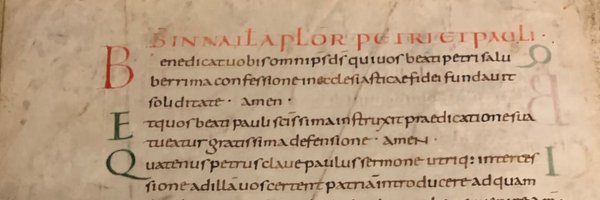 B̄ IN NAT̄L APLŌR PETRI ET PAULI ·
Benedicat uobis omnip̄s d̄s qui uos beati petri salu
berrima confessione in ecclesiasticae fidei fundauit
soliditate · amen ·
Et quos beati pauli sc̄issima instruxit praedicatione sua
tueatur gratissima defensione · amen ·
Quatenus petrus claue paulus sermone utriq: interces
sione ad illā uos certent patriā introducere ad quam